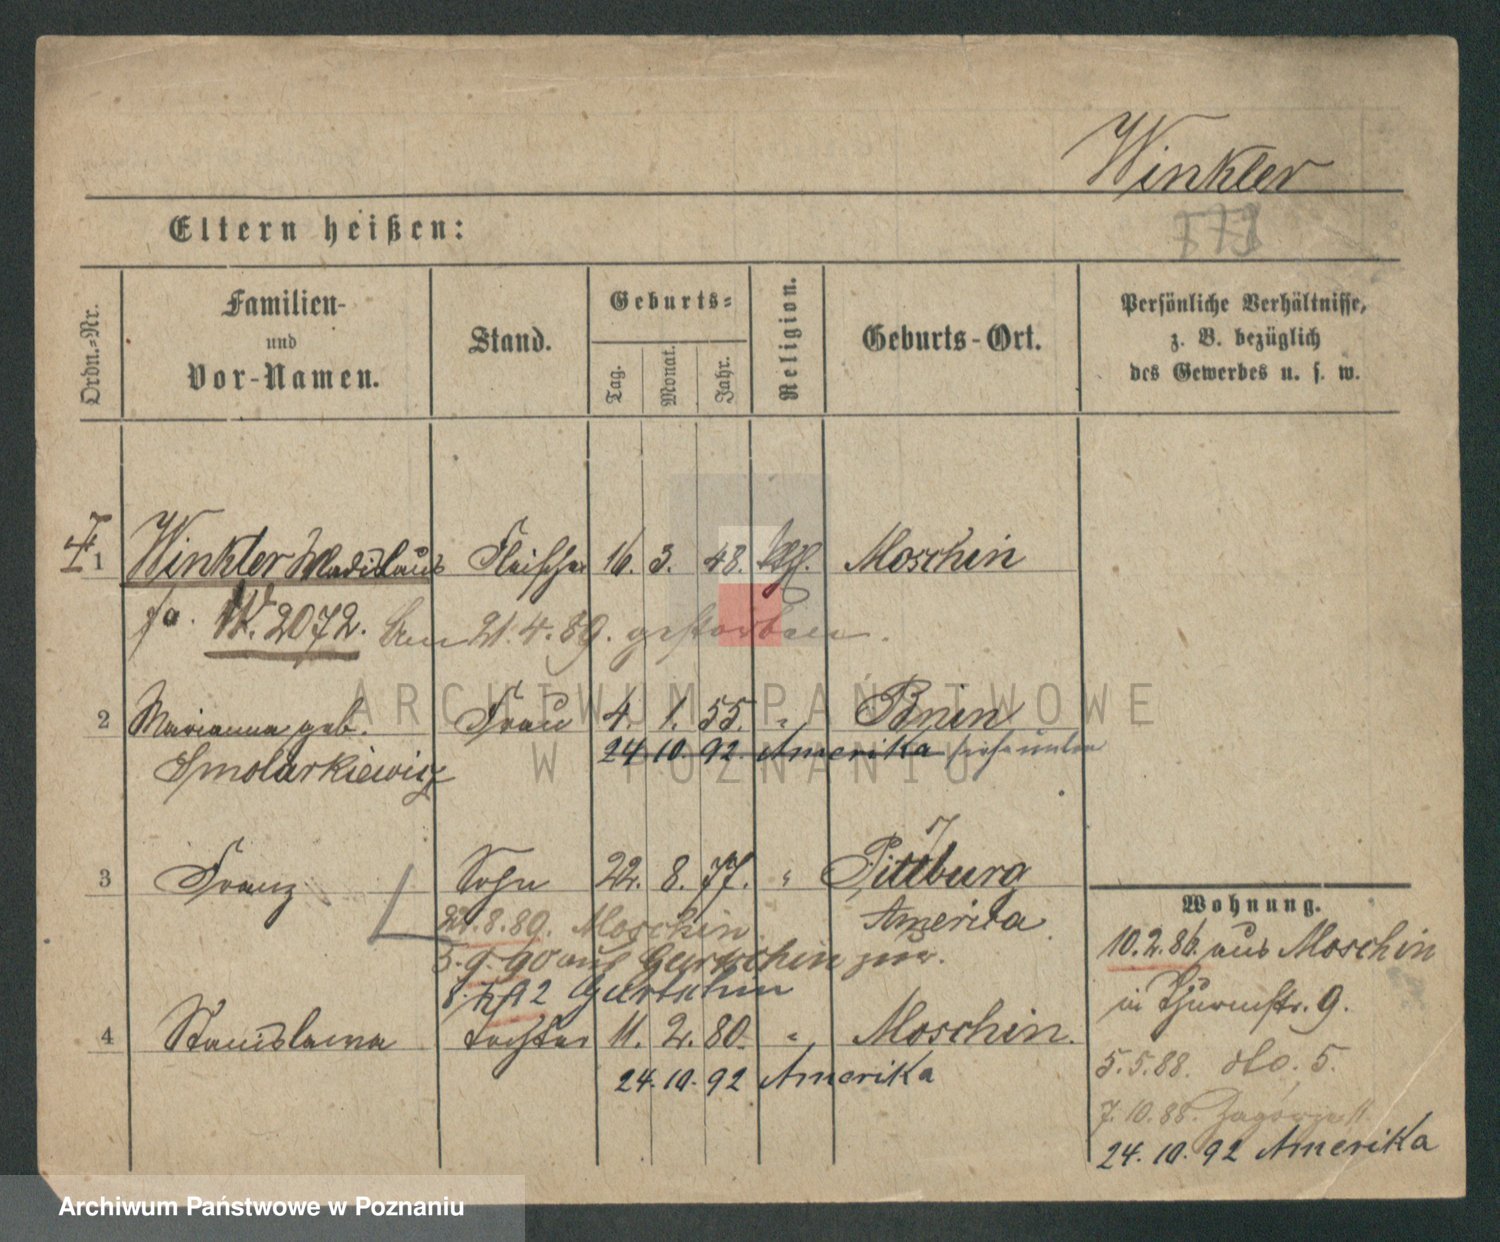 Winkler
Eltern heißen:
Ordn.-Nr.
Familien-
und
Vor-Namen.
Stand.
Geburts-
Tag.
Monat.
Jahr.
Religion.
Geburts-Ort.
Persönliche Verhältnisse,
z. B. bezüglich
des Gewerbes u. s. w.
1 Winkler Wladislaus Fleischer 16. 3. 48. kath. Moschin
W. 2072. 21.4.89. gestorben.
2 Marianna geb. Frau 4. 1. 55. " Bnin
Smolarkiewicz
24.10.92. Amerika siehe unten
3 Franz Sohn 22. 8. 77. " Pittburg
Amerika
22.8.89. Moschin
5.9.90 aus Gurtschin zur.
Gurtschin
4 Stanislawa Tochter 11. 2. 80. " Moschin.
24.10.92 Amerika
Wohnung.
10.2.86. aus Moschin
in Thurmstr. 9.
5.5.88. dto. 5.
7.10.88. Zagórze
24.10.92 Amerika
ARCHIWUM PAŃSTWOWE
W POZNANIU
Archiwum Państwowe w Poznaniu